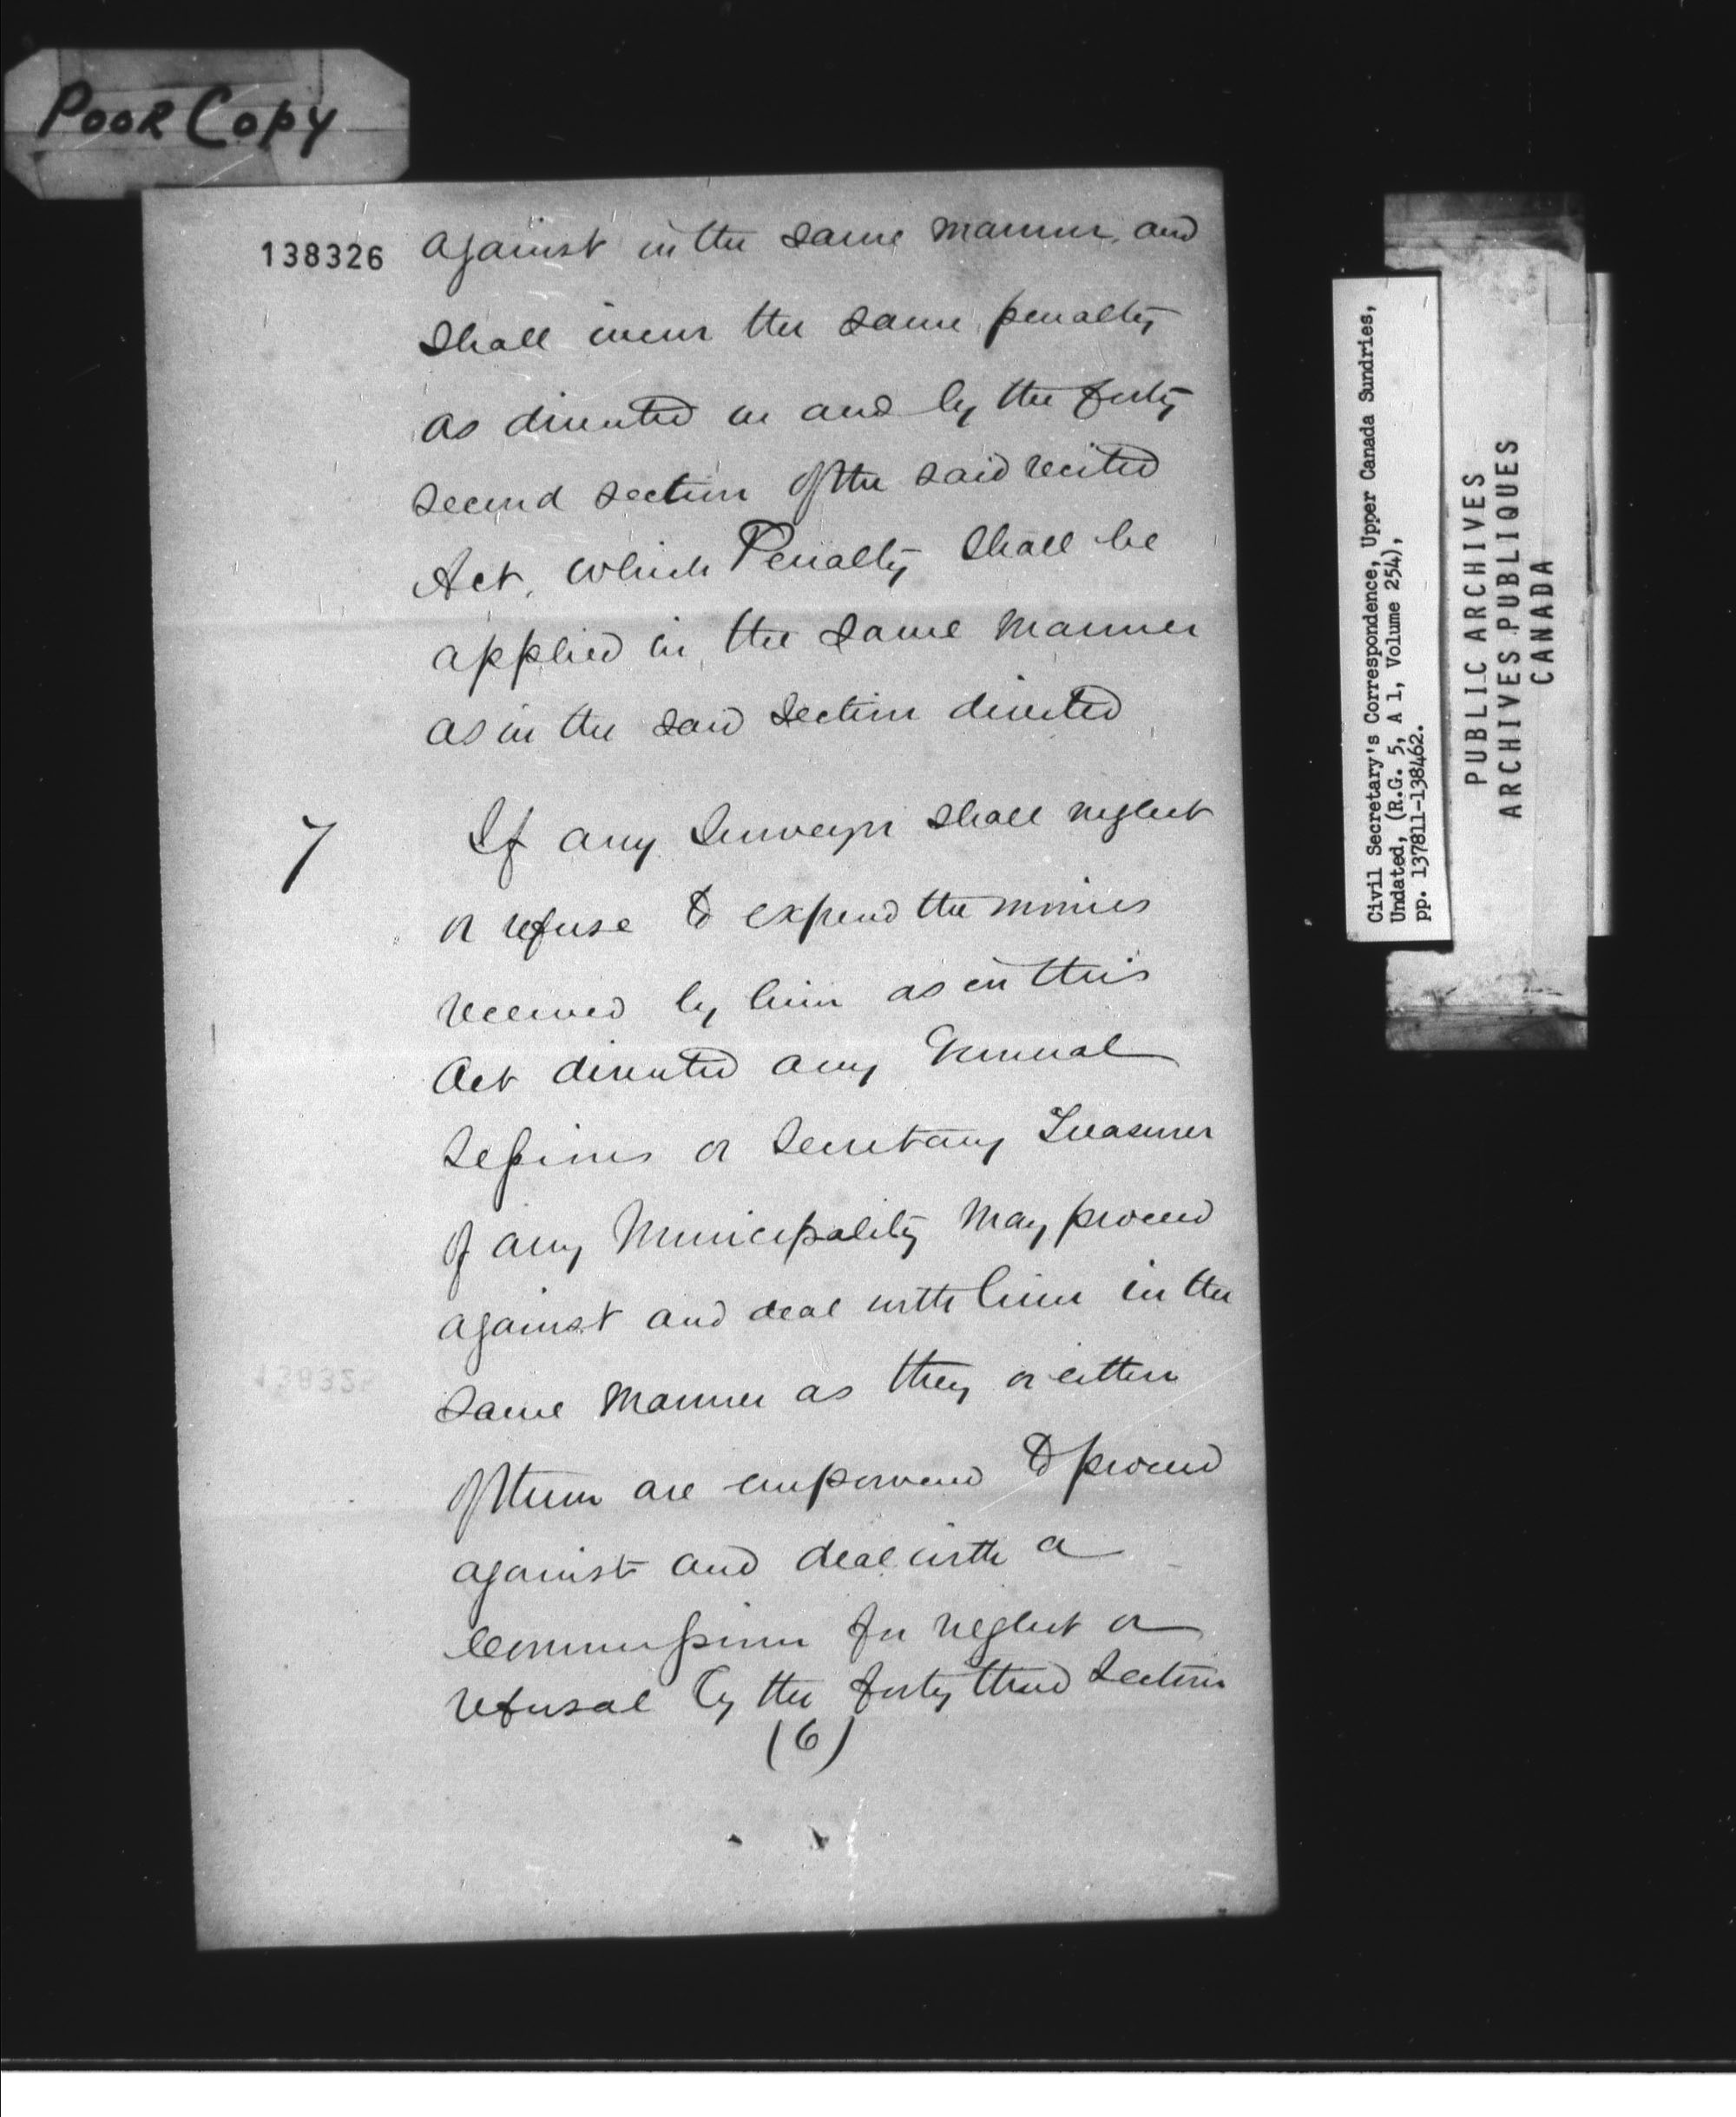 Poor Copy
138326
against in the same manner, and
shall incur the same penalty
as directed in and by the forty
second section of the said recited
Act, which Penalty shall be
applied in the same manner
as in the said section directed
7 If any Surveyor shall neglect
or refuse to expend the monies
received by him as in this
Act directed any General
Sessions or Secretary Treasurer
of any Municipality may proceed
against and deal with him in the
same manner as they or either
of them are empowered to proceed
against and deal with a
Commissioner for neglect or
refusal by the forty third Section
(6)
Civil Secretary's Correspondence, Upper Canada Sundries,
Undated, (R.G. 5, A 1, Volume 254),
pp. 137811-138462.
PUBLIC ARCHIVES
ARCHIVES PUBLIQUES
CANADA